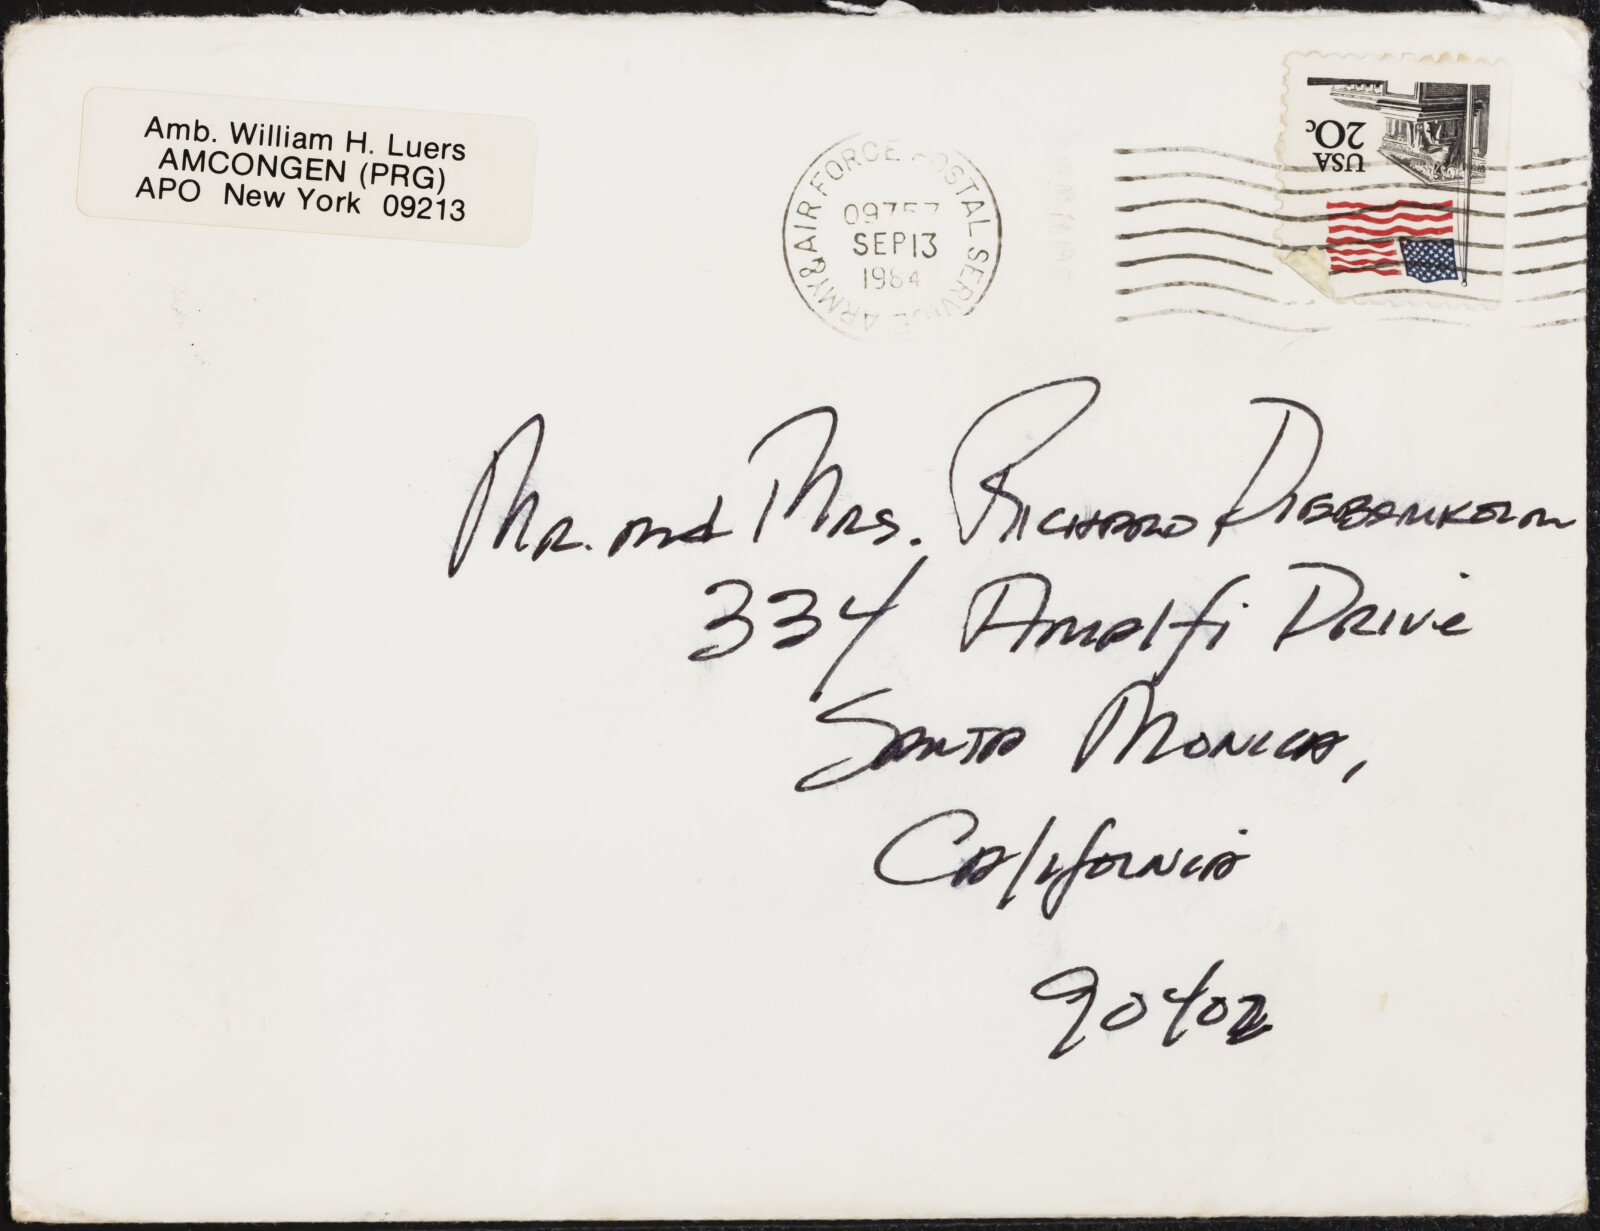 Amb. William H. Luers
AMCONGEN (PRG)
APO New York 09213
ARMY & AIR FORCE POSTAL SERVICE
09757
SEP 13
1984
USA
20c
Mr. and Mrs. Richard Diebenkorn
334 Amalfi Drive
Santa Monica,
California
90402